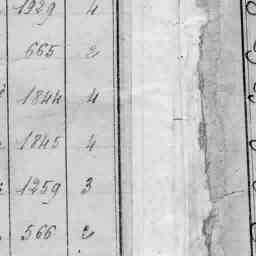 1929 4
665 2
1844 4
1845 4
1259 3
566 2